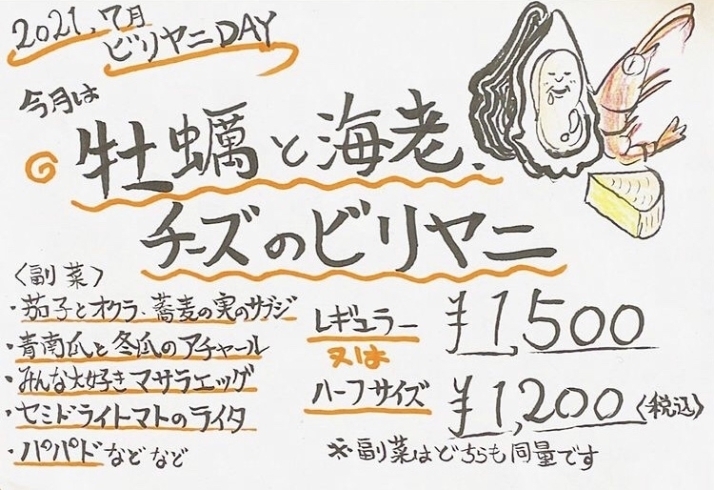 2021.7月
ビリヤニDAY
今月は
牡蠣と海老、
チーズのビリヤニ
〈副菜〉
・茄子とオクラ、蕎麦の実のサブジ
・青南瓜と冬瓜のアチャール
・みんな大好きマサラエッグ
・セミドライトマトのライタ
・パパドなどなど
レギュラー ¥1,500
又は
ハーフサイズ ¥1,200〈税込〉
※副菜はどちらも同量です